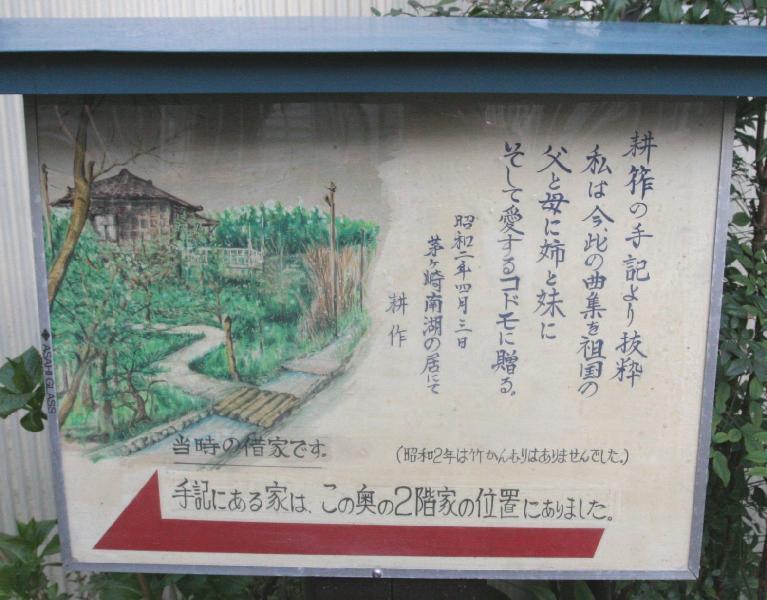 耕筰の手記より抜粋
私は今、此の曲集を祖国の
父と母に姉と妹に
そして愛するコドモに贈る。
昭和二年四月三日
茅ヶ崎南湖の居にて
耕作
(昭和2年は竹かんむりはありませんでした。)
当時の借家です。
手記にある家は、この奥の2階家の位置にありました。
ASAHI GLASS